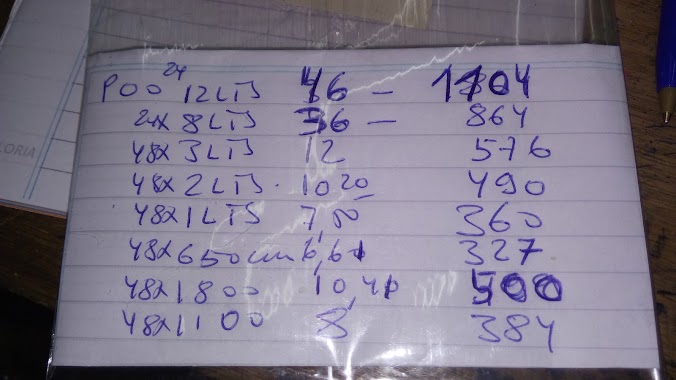 POO 24 12LTS 46 — 1104
24x 8LTS 36 — 864
48x 3LTS 12 576
48x 2LTS · 10 20 490
48x 1LTS 7,50 360
48x 650 um 6,61 327
48x1800 10,41 500
48x1100 8 384
LORIA